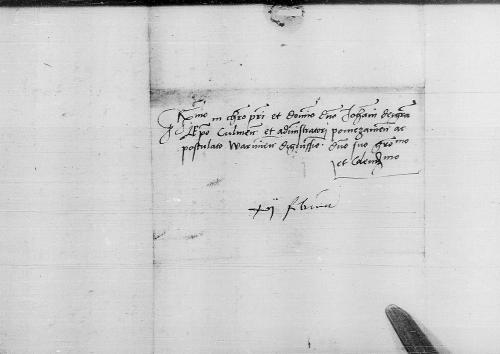 R mo in chro pri et domino dno Johanni dei gra
Epo Culmen et administratori pomezanien ac
postulato Warmien dignissio dno suo gro mo
et clemen mo
xij februarii